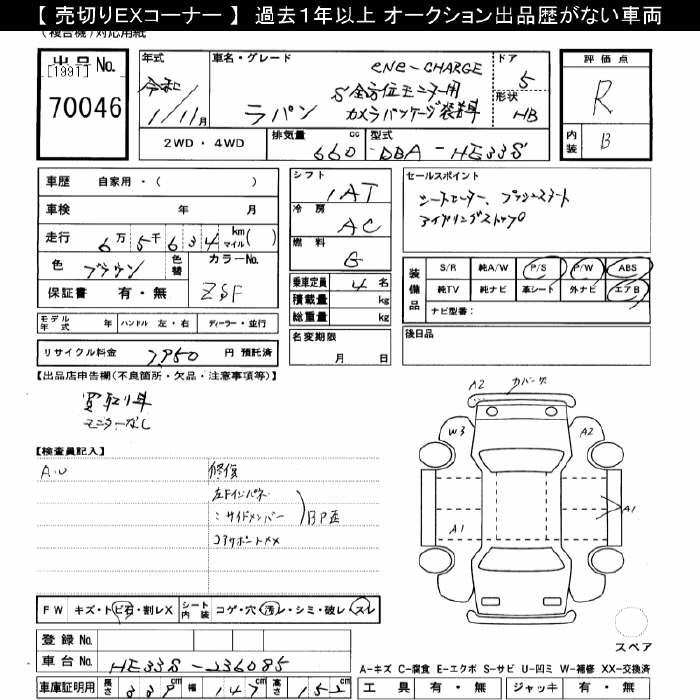 【 売切りEXコーナー 】 過去1年以上 オークション出品歴がない車両
(複合機)対応用紙
出品 No.
[1991]
70046
年式
令和
1/11月
車名・グレード
ene-CHARGE
ラパン
S 全方位モニター用
カメラパッケージ装着車
ドア
5
形状
HB
評価点
R
内装
B
2WD ・ 4WD
排気量
660
cc
型式
DBA - HE33S
車歴
自家用・( )
車検
年 月
走行
6万5千634
km
マイル( )
色
ブラウン
色替
カラーNo.
ZSF
保証書
有・無
シフト
IAT
冷房
AC
燃料
G
乗車定員
4名
積載量
kg
総重量
kg
セールスポイント
シートヒーター、プッシュスタート
アイドリングストップ
装備品
S/R 純A/W P/S P/W ABS
純TV 純ナビ 革シート 外ナビ エアB
ナビ型番:
モデル年式
年
ハンドル 左・右
ディーラー・並行
リサイクル料金
7,950
円 預託済
名変期限
月 日
後日品
【出品店申告欄(不良箇所・欠品・注意事項等)】
買取り車
モニターなし
【検査員記入】
A.U
修復
左Fインパネ
: サイドメンバー
BP歪
コアサポートメメ
A2
カバーサ
W3
A2
A1
A1
スペア
FW
キズ・トビ石・割レX
シート内装
コゲ・穴・汚レ・シミ・破レ・スレ
登録 No.
車台 No.
HE33S-236085
車庫証明用
長さ
339cm
幅
147cm
高さ
152cm
A-キズ C-腐食 E-エクボ S-サビ U-凹ミ W-補修 XX-交換済
工具
有・無
ジャッキ
有・無